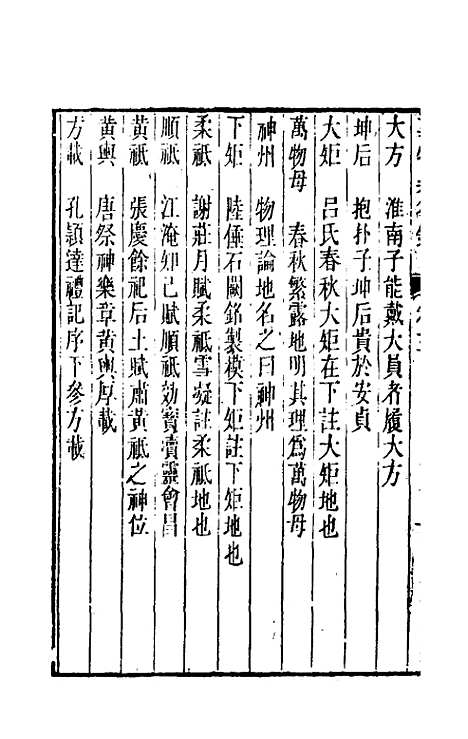 大方　淮南子能戴大員者履大方
坤后　抱朴子坤后貴於安貞
大矩　呂氏春秋大矩在下註大矩地也
萬物母　春秋繁露地明其理爲萬物母
神州　物理論地名之曰神州
下矩　陸倕石闕銘製模下矩註下矩地也
柔祇　謝莊月賦柔祇雪凝註柔祇地也
順祇　江淹知己賦順祇効寶賣靈會昌
黃祇　張慶餘祀后土賦肅黃祇之神位
黃輿　唐祭神樂章黃輿厚載
方載　孔頴達禮記序下參方載